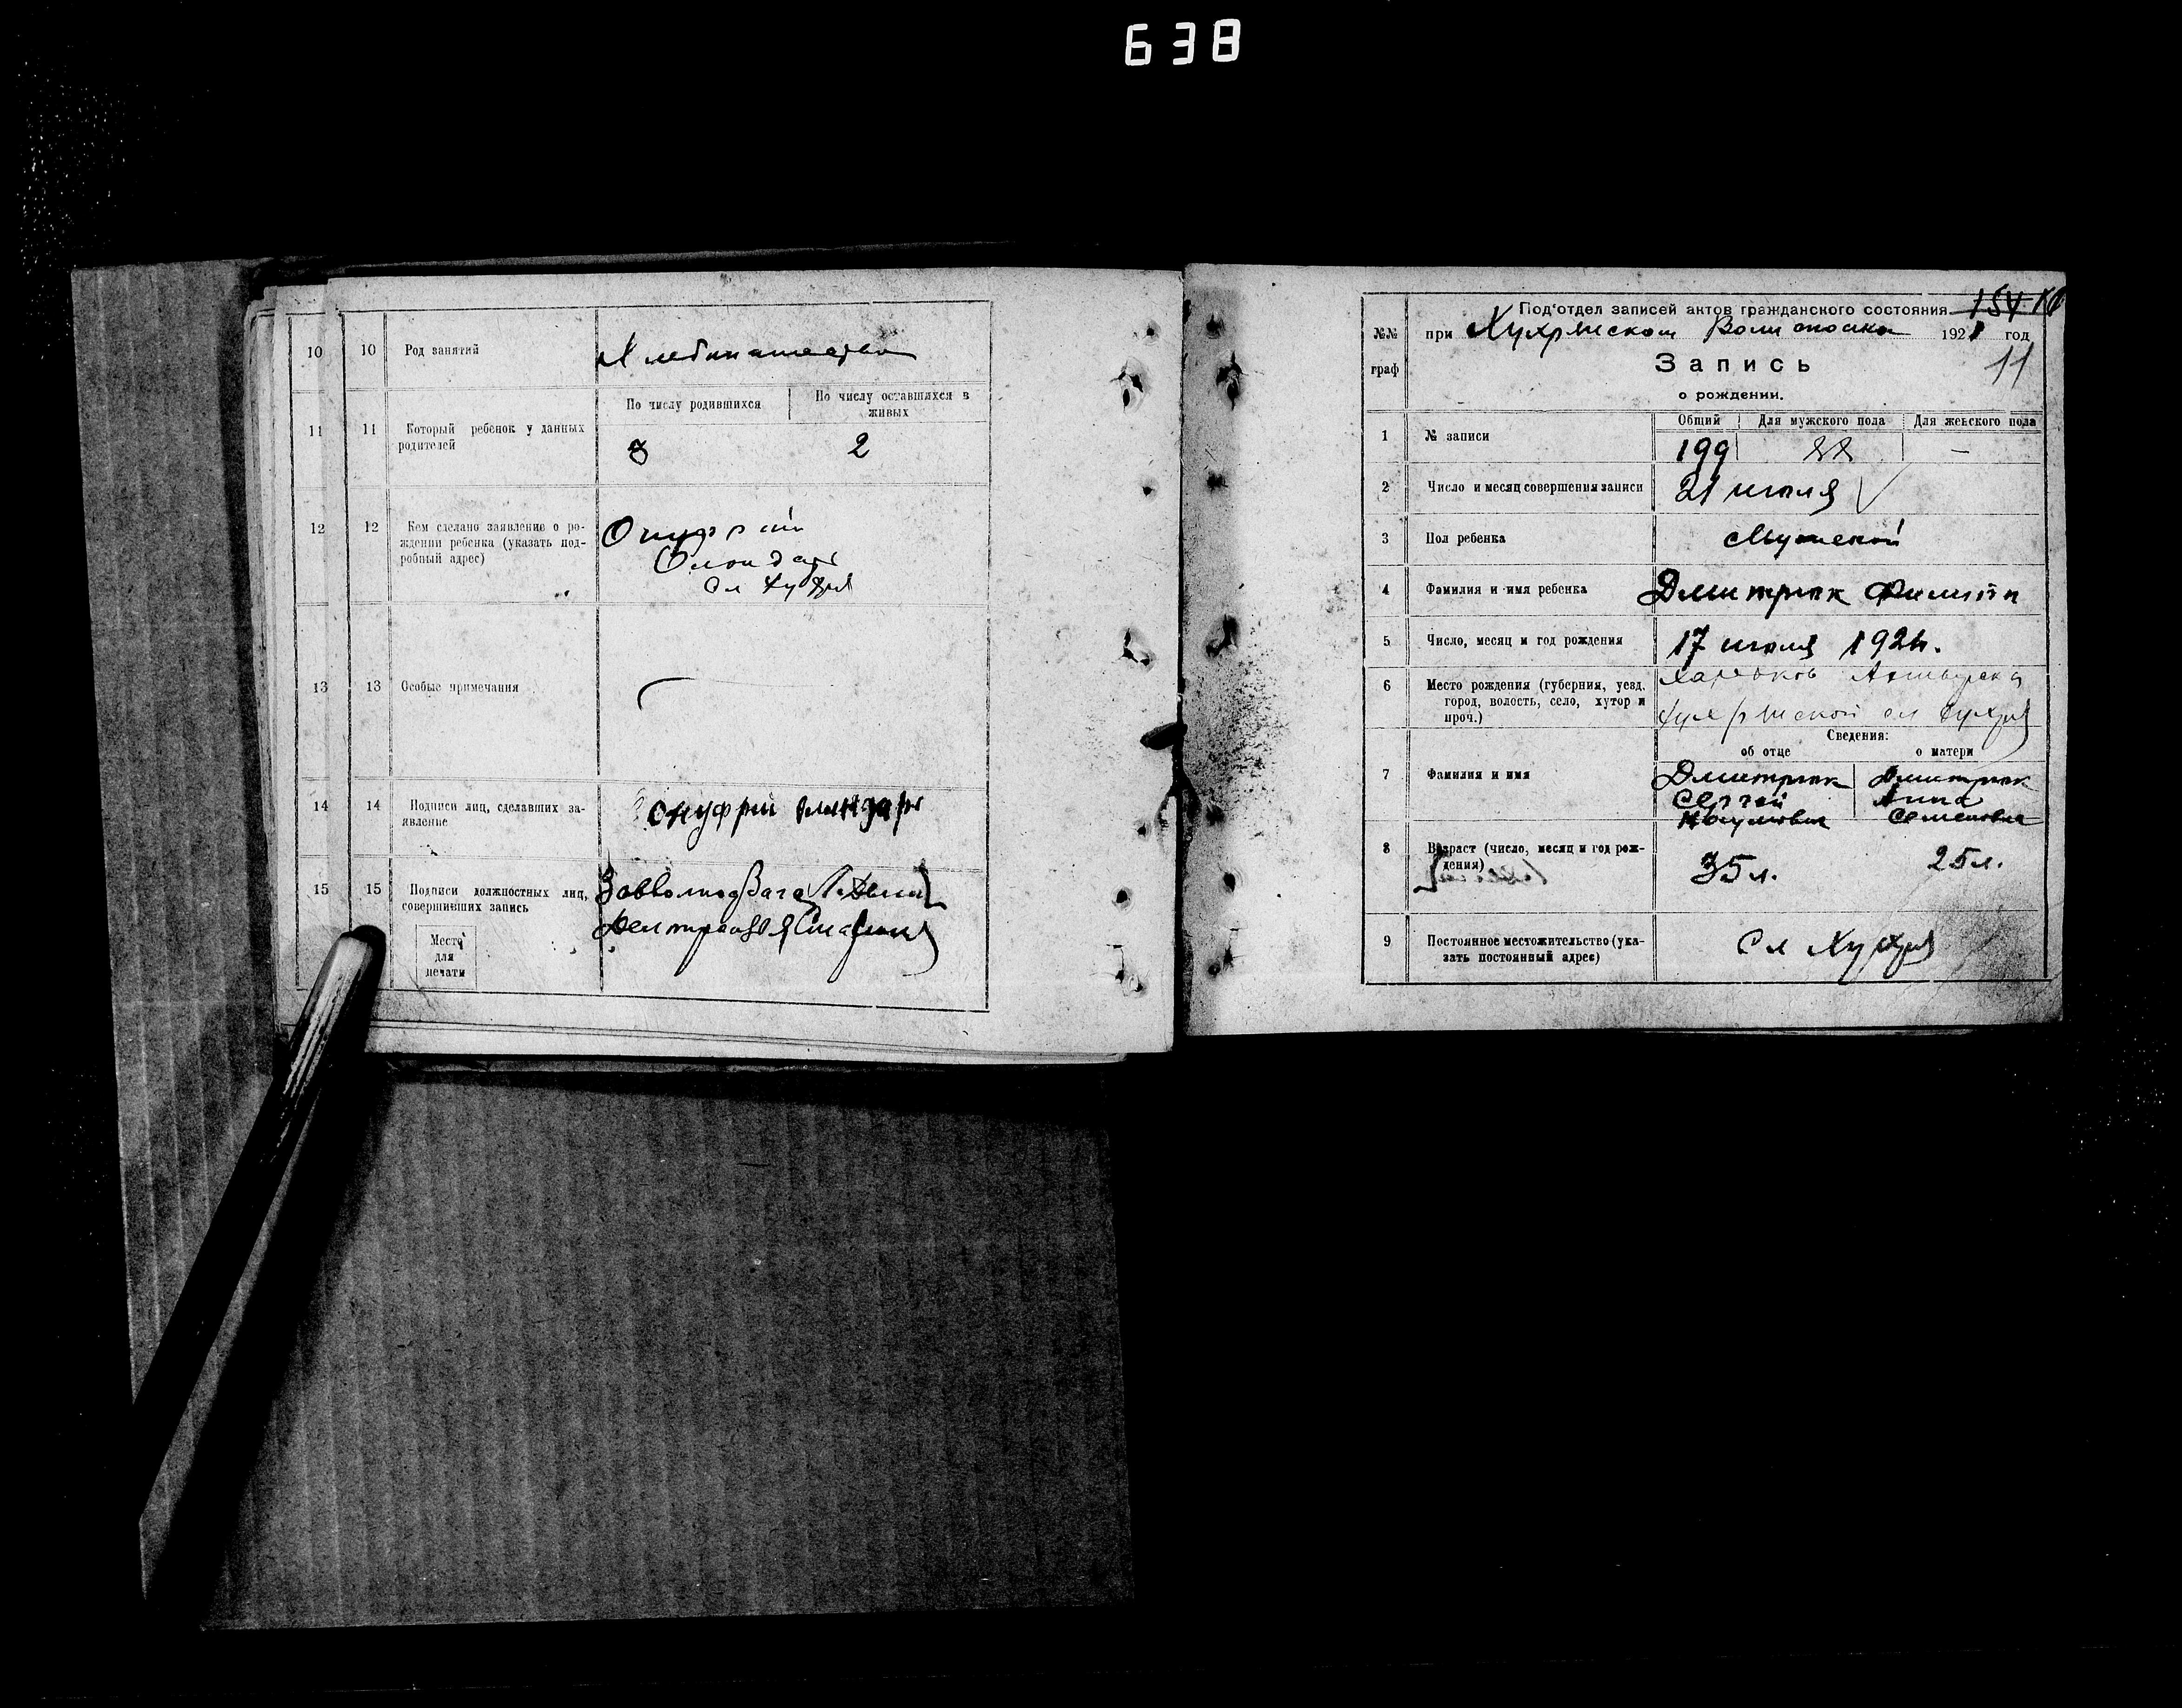 638
10 10 Род занятий Хлебопашество
По числу родившихся По числу оставшихся в живых
11 11 Который ребенок у данных родителей
3 2
12 12 Кем сделано заявление о ро-
ждении ребенка (указать под-
робный адрес)
Онуфрий
Сл Хухря
13 13 Особые примечания
14 14 Подписи лиц, сделавших за-
явление
Онуфрий
15 15 Подписи должностных лиц,
совершивших запись
Место
для
печати
Под'отдел записей актов гражданского состояния 154
№№ при Хухрянском 192 год
граф Запись 11
о рождении.
Общий Для мужского пола Для женского пола
1 № записи 199 —
2 Число и месяц совершения записи 21 июля
3 Пол ребенка Мужской
4 Фамилия и имя ребенка Дмитряк Филипп
5 Число, месяц и год рождения 17 июля 192
6 Место рождения (губерния, уезд,
город, волость, село, хутор и
проч.)
Харьков Ахтырска
Хухрянской сл Хухря
Сведения:
об отце о матери
7 Фамилия и имя Дмитряк Дмитряк
Сергей Анна
Наумович Семеновна
8 Возраст (число, месяц и год рож-
дения)
35 л. 25 л.
9 Постоянное местожительство (ука-
зать постоянный адрес)
Сл Хухря